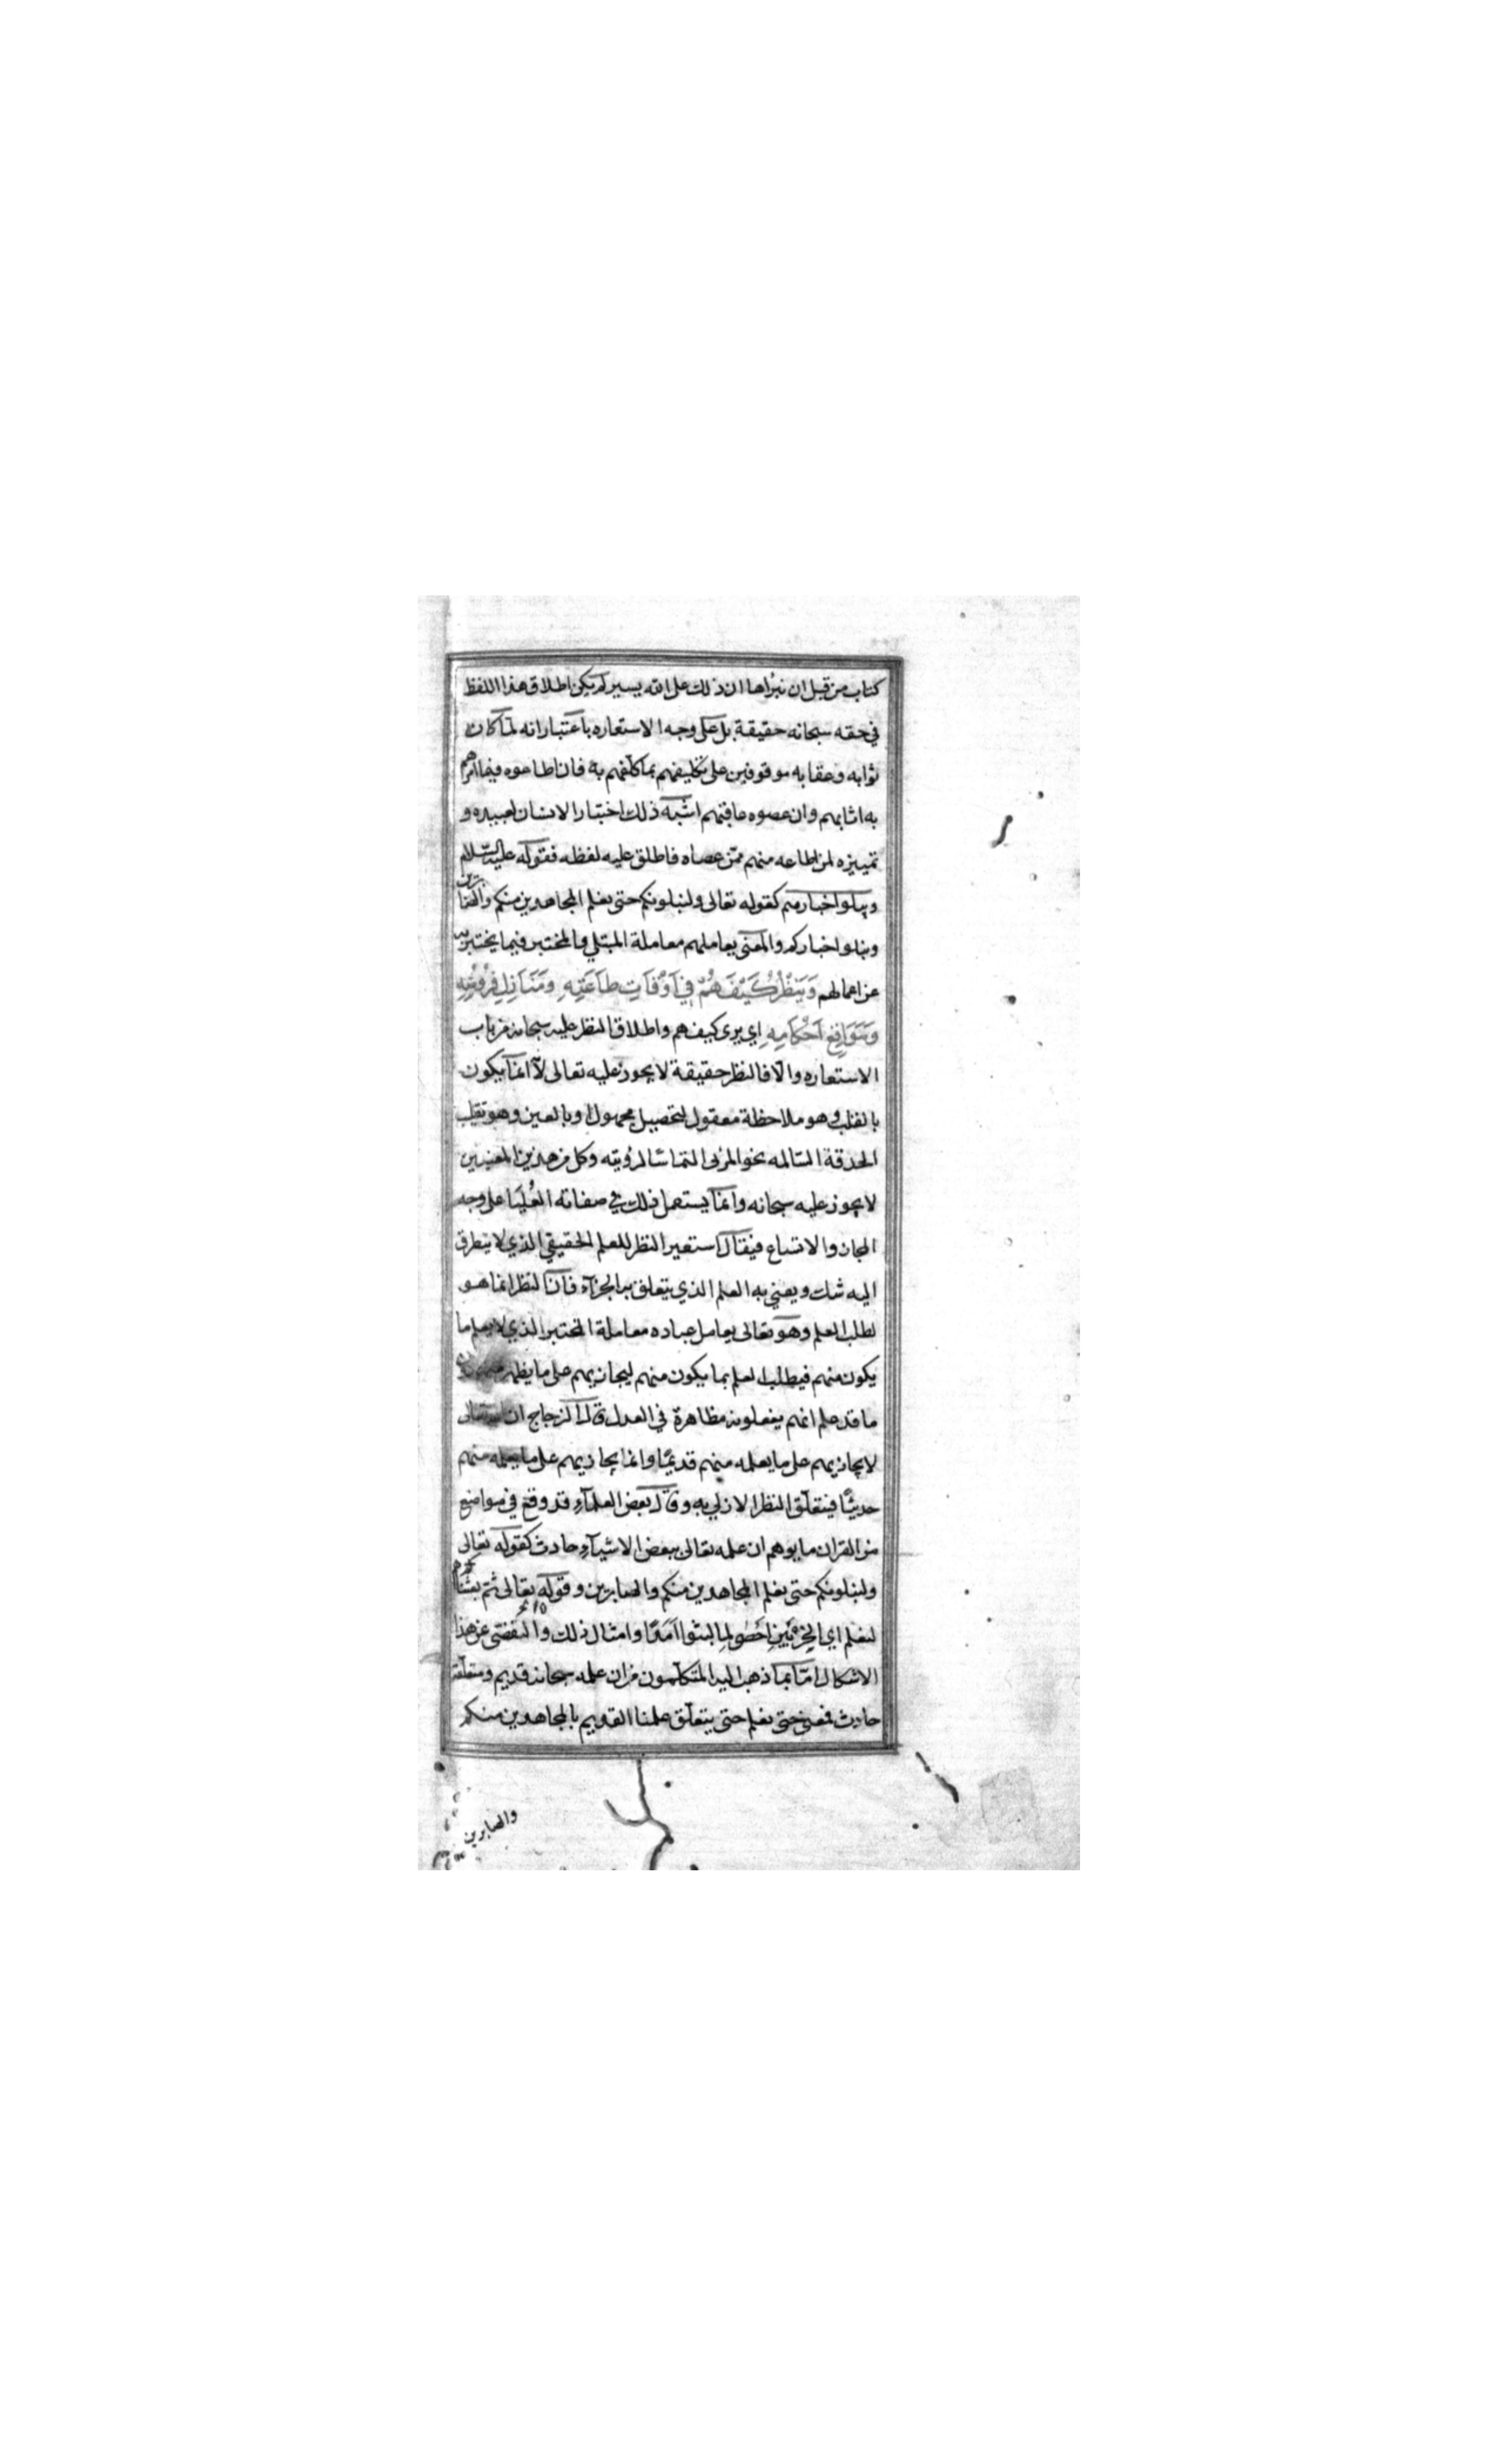 كتاب من قبل ان نبرأها ان ذلك على الله يسير لم يكن اطلاق هذا اللفظ
في حقه سبحانه حقيقة بل على وجه الاستعاره باعتبار انه لما كان
ثوابه وعقابه موقوفين على تكليفهم بما كلفهم به فان اطاعوه فيما امرهم
به اثابهم وان عصوه عاقبهم اشبه ذلك اختبار الانسان لعبيده و
تمييزه لمن اطاعه منهم ممن عصاه فاطلق عليه لفظه فقوله عليه السلام
ويبلو اخبارهم كقوله تعالى ولنبلونكم حتى نعلم المجاهدين منكم والصابرين
ونبلو اخباركم والمعنى يعاملهم معاملة المبتلي والمختبر فيما يختبره
عن اعمالهم وَيَنْظُرُ كَيْفَ هُمْ فِي اَوْقَاتِ طَاعَتِهِ وَمَنَازِلِ فُرُوضِهِ
وَمَوَاقِعِ اَحْكَامِهِ اي يرى كيف هم واطلاق النظر عليه سبحانه من باب
الاستعاره والا فالنظر حقيقة لا يجوز عليه تعالى لانه انما يكون
بالقلب وهو ملاحظة معقول لتحصيل مجهول او بالعين وهو تقليب
الحدقة السالمه نحو المرئى التماسا لرؤيته وكل من هذين المعنيين
لا يجوز عليه سبحانه وانما يستعمل ذلك في صفاته العُليَا على وجه
المجاز والاتساع فيقال استعير النظر للعلم الحقيقي الذي لا يتطرق
اليه شك ويعني به العلم الذي يتعلق به الجزآء فان النظر انما هو
لطلب العلم وهو تعالى يعامل عباده معاملة المختبر الذي لا يعلم ما
يكون منهم فيطلب العلم بما يكون منهم ليجازيهم على ما يظهر منهم
ما قد علم انهم يفعلونه مظاهرة في العدل قال الزجاج ان الله تعالى
لا يجازيهم على ما يعلمه منهم قديمًا وانما يجازيهم على ما يعلمه منهم
حديثًا فيتعلق النظر الازلي به وقال بعض العلمآء قد وقع في مواضع
من القران ما يوهم ان علمه تعالى ببعض الاشيآء حادث كقوله تعالى
ولنبلونكم حتى نعلم المجاهدين منكم والصابرين وقوله تعالى ثم بعثناهم
لنعلم اي الحِزْبَيْنِ اَحْصَى لِمَا لبثوا اَمَدًا وامثال ذلك والتفصّي عن هذا
الاشكال اما بما ذهب اليه المتكلمون من ان علمه سبحانه قديم ومتعلقه
حادث فمعنى حتى نعلم حتى يتعلق علمنا القديم بالمجاهدين منكم
والصابرين